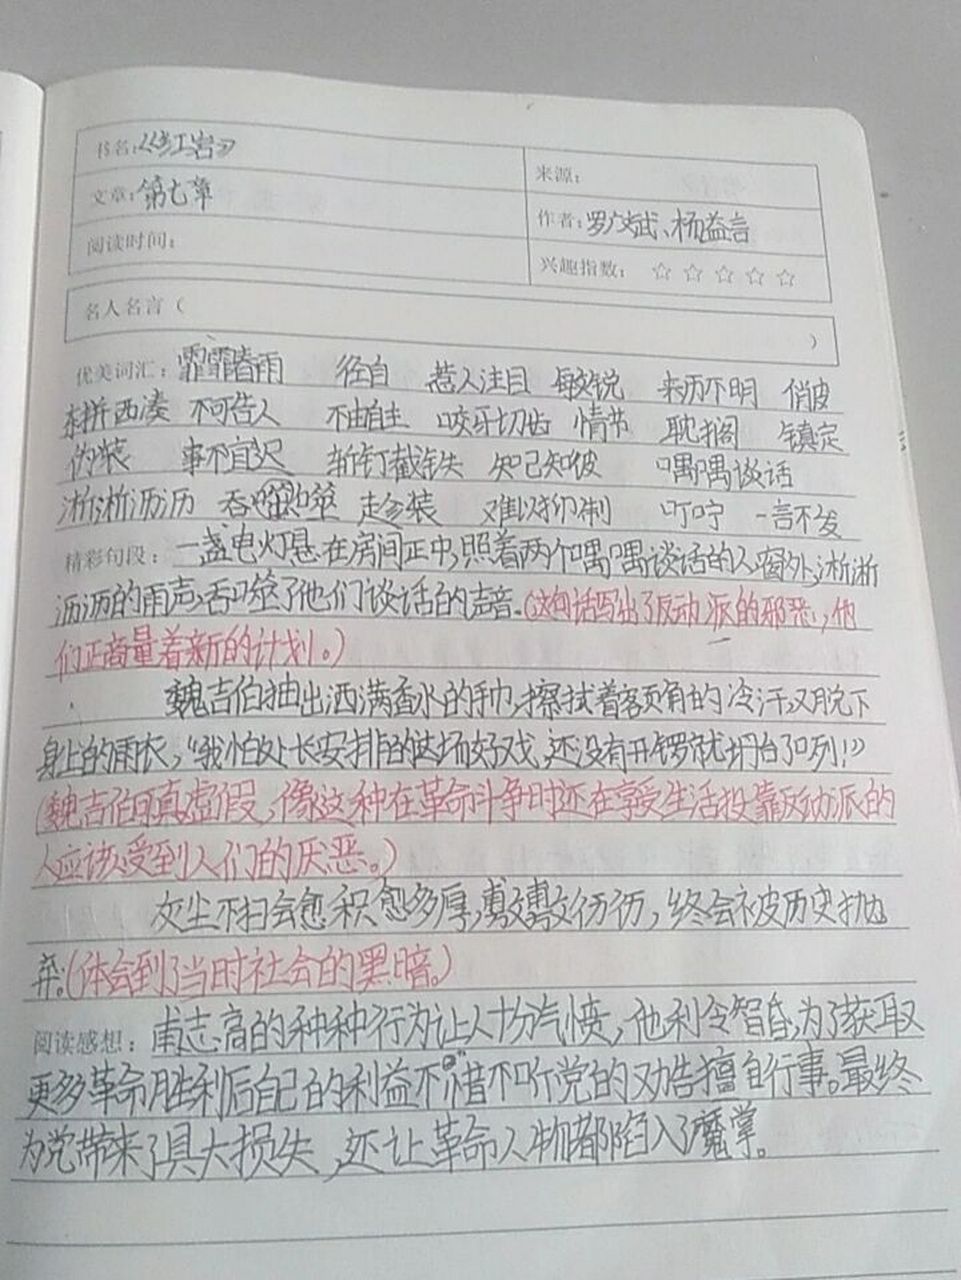 书名：《红岩》
来源：
文章：第七章
作者：罗广斌、杨益言
阅读时间：
兴趣指数：☆☆☆☆☆
名人名言（
）
优美词汇：霏霏春雨 径自 惹人注目 敏锐 来历不明 俏皮
东拼西凑 不可告人 不由自主 咬牙切齿 情节 耽搁 镇定
伪装 事不宜迟 斩钉截铁 知己知彼 喁喁谈话
淅淅沥沥 吞噬 趁 装 难以抑制 叮咛 一言不发
精彩句段：一盏电灯悬在房间正中，照着两个喁喁谈话的人，窗外，淅淅
沥沥的雨声，吞噬了他们谈话的声音。（这句话写出了反动派的邪恶，他
们正商量着新的计划。）
魏吉伯抽出洒满香水的手巾，擦拭着客页角的冷汗，又脱下
身上的雨衣，“我怕处长安排的这场好戏，还没有开锣就坍台了咧！”
（魏吉伯可真虚假，像这种在革命斗争时还在享受生活投靠反动派的
人应该受到人们的厌恶。）
灰尘不扫会愈积愈多厚，敷敷衍衍，终会被历史抛
弃。（体会到了当时社会的黑暗。）
阅读感想：甫志高的种种行为让人十分气愤，他利令智昏，为了获取
更多革命胜利后自己的利益不惜不听党的劝告擅自行事。最终
为党带来了具大损失，还让革命人物都陷入了魔掌。